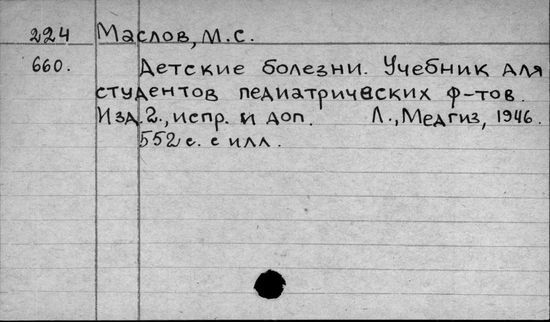 224 Маслов, М.С.
660. Детские болезни. Учебник для
студентов педиатрических ф-тов.
Изд. 2., испр. и доп. Л., Медгиз, 1946.
552 с. с илл.